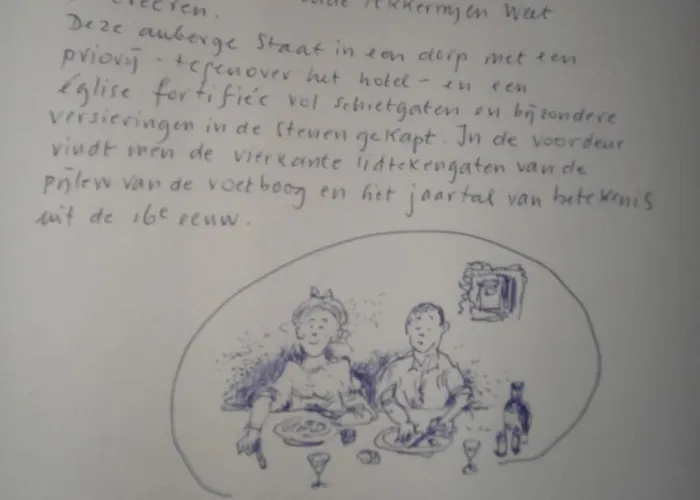 lekkernijen weet
Deze auberge staat in een dorp met een
priorij - tegenover het hotel - en een
église fortifiée vol schietgaten en bijzondere
versieringen in de stenen gekapt. In de voordeur
vindt men de vierkante lidtekengaten van de
pijlen van de voetboog en het jaartal van betekenis
uit de 16e eeuw.